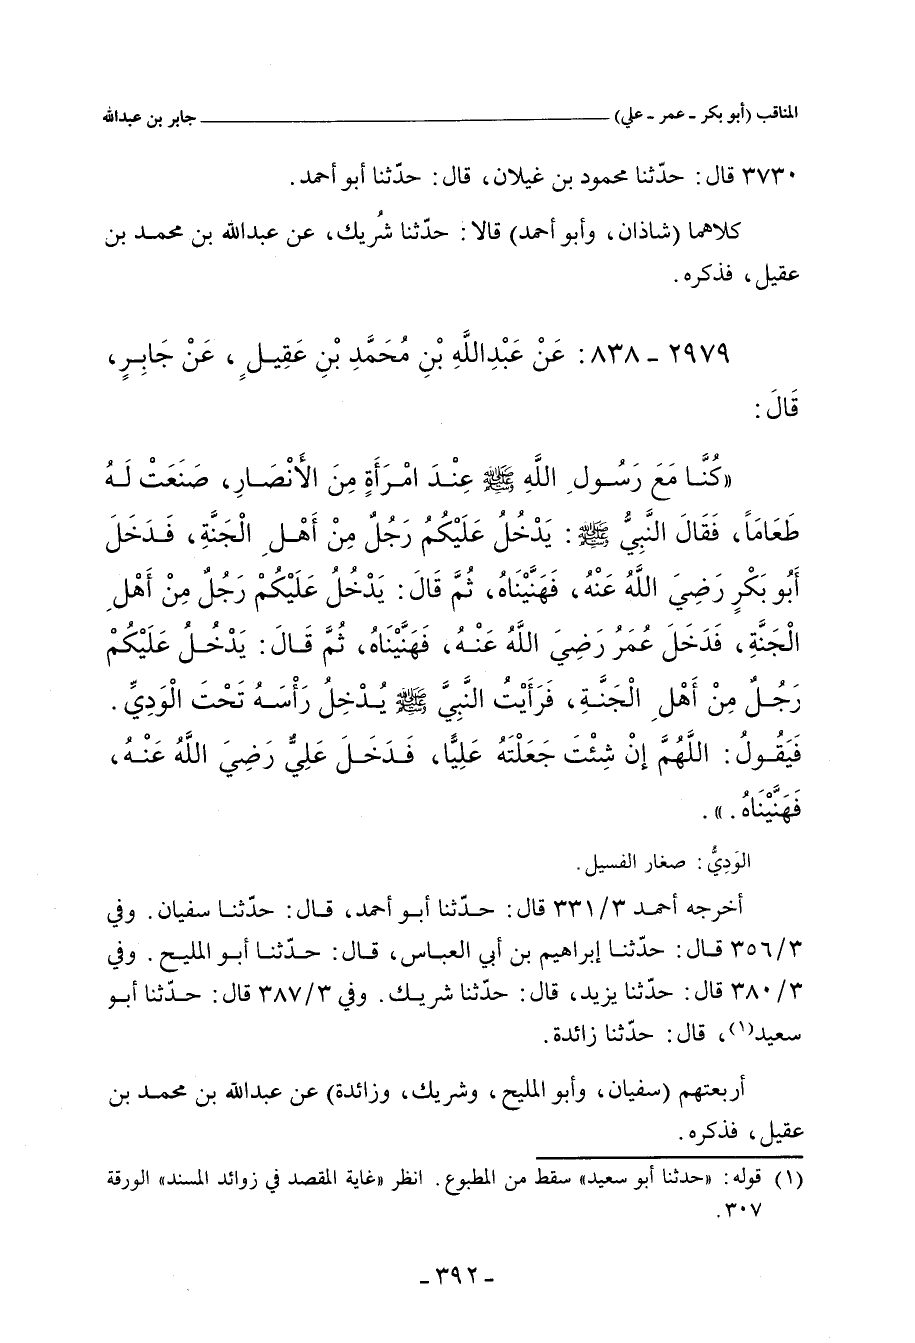 المناقب (أبو بكر - عمر - علي) جابر بن عبدالله
٣٧٣٠ قال: حدّثنا محمود بن غيلان، قال: حدّثنا أبو أحمد.
كلاهما (شاذان، وأبو أحمد) قالا: حدّثنا شُريك، عن عبدالله بن محمد بن
عقيل، فذكره.
٢٩٧٩ - ٨٣٨: عَنْ عَبْدِاللَّهِ بْنِ مُحَمَّدِ بْنِ عَقِيلٍ، عَنْ جَابِرٍ،
قَالَ:
«كُنَّا مَعَ رَسُولِ اللَّهِ ﷺ عِنْدَ امْرَأَةٍ مِنَ الأَنْصَارِ، صَنَعَتْ لَهُ
طَعَامَاً، فَقَالَ النَّبِيُّ ﷺ: يَدْخُلُ عَلَيْكُمُ رَجُلٌ مِنْ أَهْلِ الْجَنَّةِ، فَدَخَلَ
أَبُو بَكْرٍ رَضِيَ اللَّهُ عَنْهُ، فَهَنَّيْنَاهُ، ثُمَّ قَالَ: يَدْخُلُ عَلَيْكُمْ رَجُلٌ مِنْ أَهْلِ
الْجَنَّةِ، فَدَخَلَ عُمَرُ رَضِيَ اللَّهُ عَنْهُ، فَهَنَّيْنَاهُ، ثُمَّ قَالَ: يَدْخُلُ عَلَيْكُمْ
رَجُلٌ مِنْ أَهْلِ الْجَنَّةِ، فَرَأَيْتُ النَّبِيَّ ﷺ يُدْخِلُ رَأْسَهُ تَحْتَ الْوَدِيِّ.
فَيَقُولُ: اللَّهُمَّ إِنْ شِئْتَ جَعَلْتَهُ عَلِيًّا، فَدَخَلَ عَلِيٌّ رَضِيَ اللَّهُ عَنْهُ،
فَهَنَّيْنَاهُ.».
الوَدِيُّ: صغار الفسيل.
أخرجه أحمد ٣٣١/٣ قال: حدّثنا أبو أحمد، قال: حدّثنا سفيان. وفي
٣٥٦/٣ قال: حدّثنا إبراهيم بن أبي العباس، قال: حدّثنا أبو المليح. وفي
٣٨٠/٣ قال: حدّثنا يزيد، قال: حدّثنا شريك. وفي ٣٨٧/٣ قال: حدّثنا أبو
سعيد(١)، قال: حدّثنا زائدة.
أربعتهم (سفيان، وأبو المليح، وشريك، وزائدة) عن عبدالله بن محمد بن
عقيل، فذكره.
(١) قوله: «حدثنا أبو سعيد» سقط من المطبوع. انظر «غاية المقصد في زوائد المسند» الورقة
٣٠٧.
- ٣٩٢ -